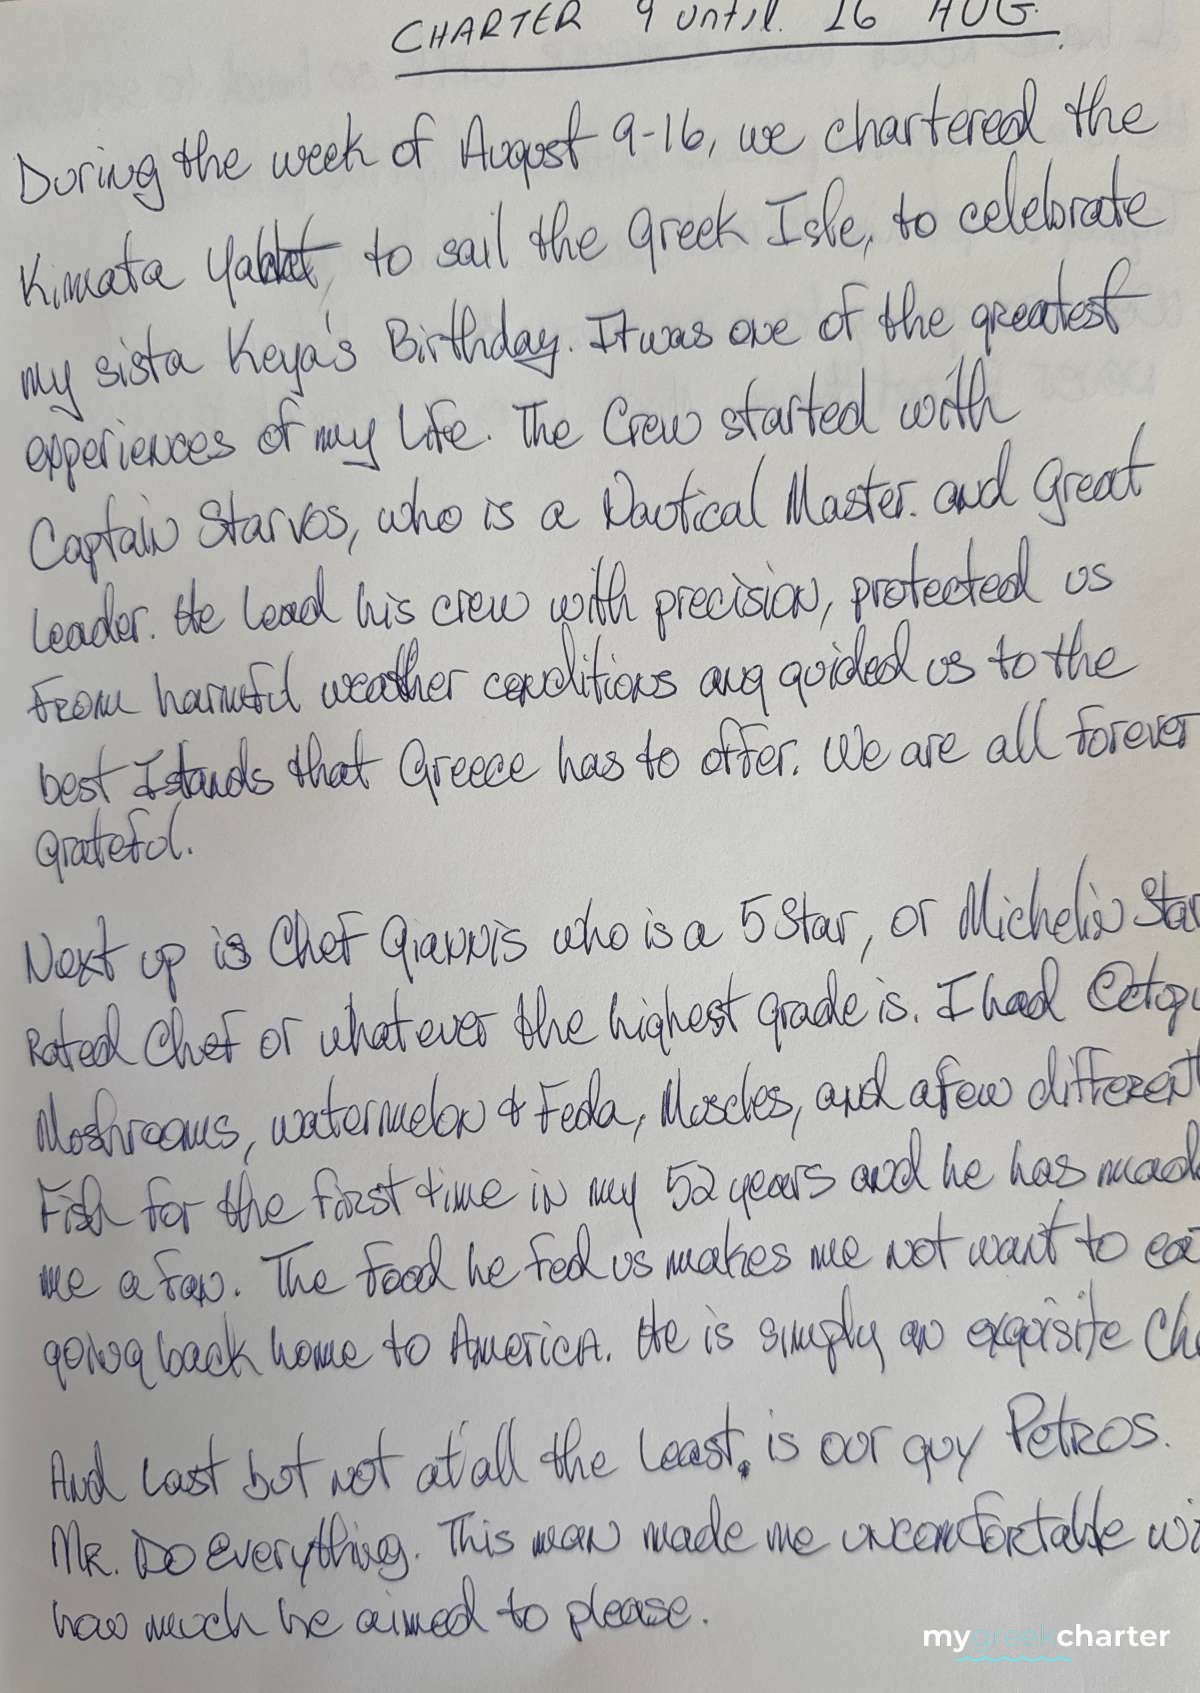 CHARTER 9 until 16 AUG.
During the week of August 9-16, we chartered the
Kimata Yahkt, to sail the Greek Isle, to celebrate
my sista Keya's Birthday. It was one of the greatest
experiences of my Life. The Crew started with
Captain Starvos, who is a Nautical Master. and Great
leader. He Lead his crew with precision, protected us
From harmful weather conditions ang guided us to the
best Islands that Greece has to offer. We are all forever
Grateful.
Next up is Chef Giannis who is a 5 Star, or Michelin Star
Rated Chef or whatever the highest grade is. I had Octopu
Moshrooms, watermelon & Feda, Muscles, and a few different
Fish for the first time in my 52 years and he has mad
me a fan. The food he fed us makes me not want to eat
going back home to America. He is simply an exquisite Che
And Last but not at all the Least. is our guy Petros.
Mr. Do Everything. This man made me uncomfortable wi
how much he aimed to please.
mygreekcharter